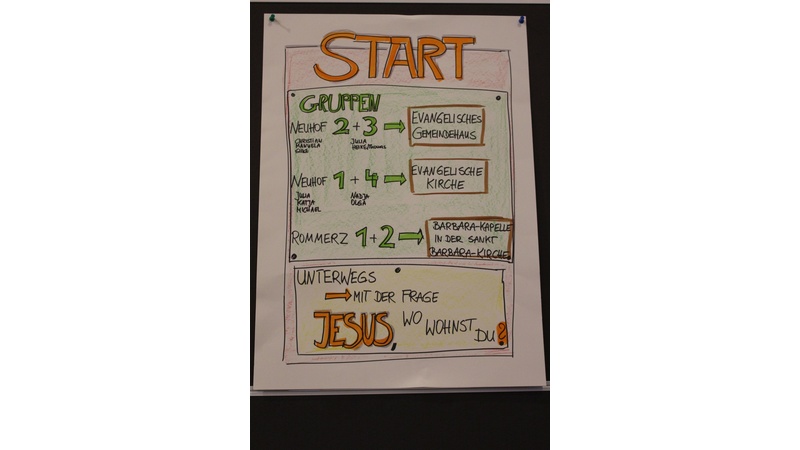 START
GRUPPEN
NEUHOF 2 + 3 → EVANGELISCHES GEMEINDEHAUS
CHRISTIAN JULIA
MANUELA
NEUHOF 1 + 4 → EVANGELISCHE KIRCHE
JULIA NADJA
KATJA OLGA
MICHAEL
ROMMERZ 1 + 2 → BARBARA-KAPELLE IN DER SANKT BARBARA-KIRCHE
UNTERWEGS
→ MIT DER FRAGE
JESUS, WO WOHNST DU?